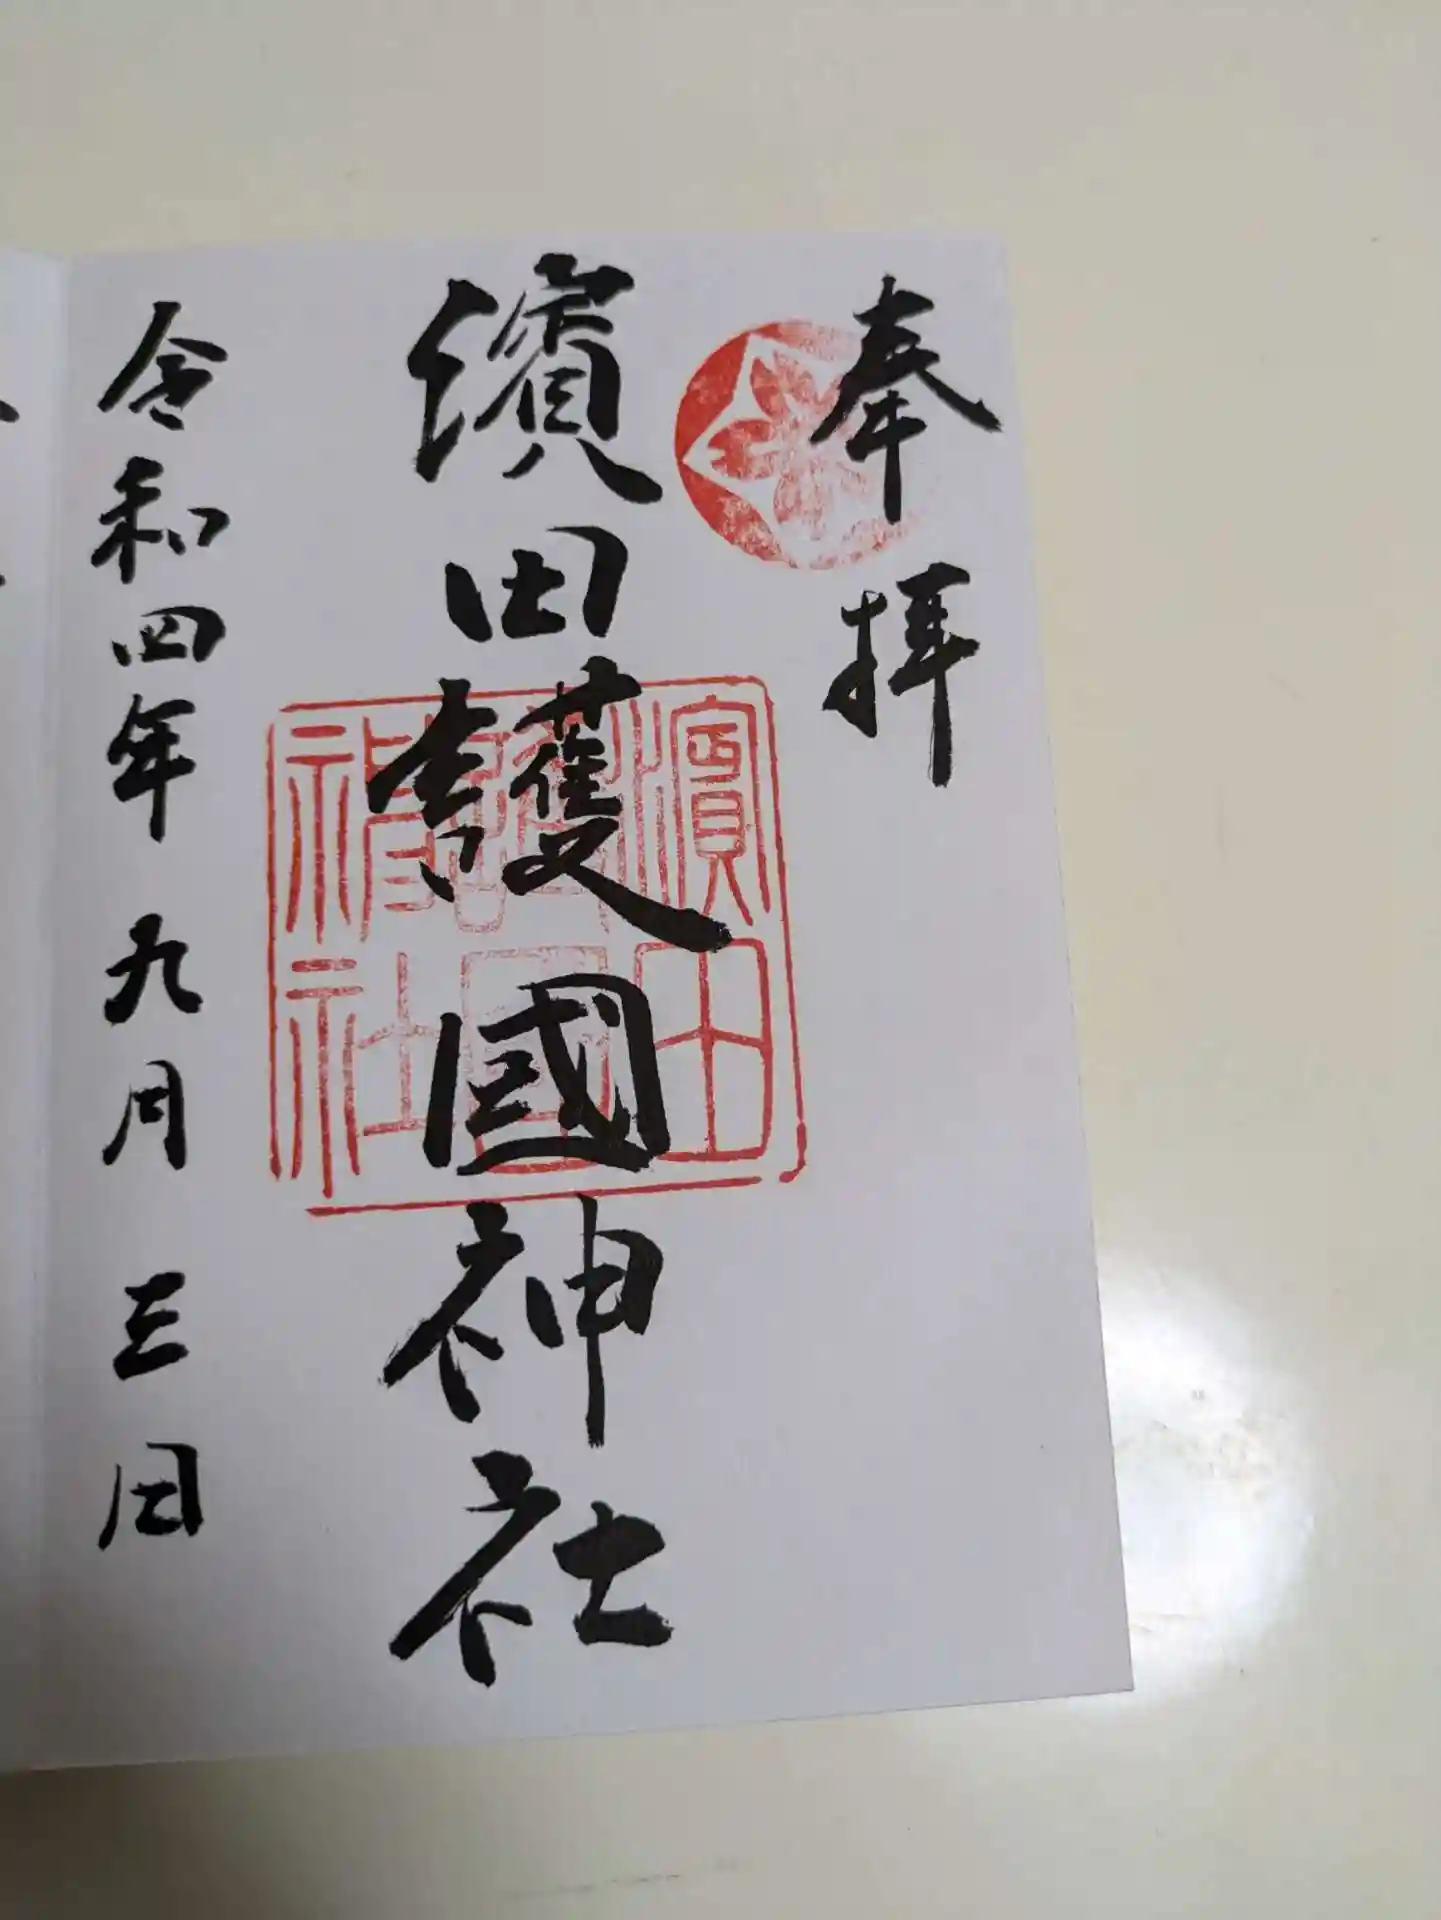 奉拝
濱田護國神社
濱田
護國
神社
令和四年九月三日